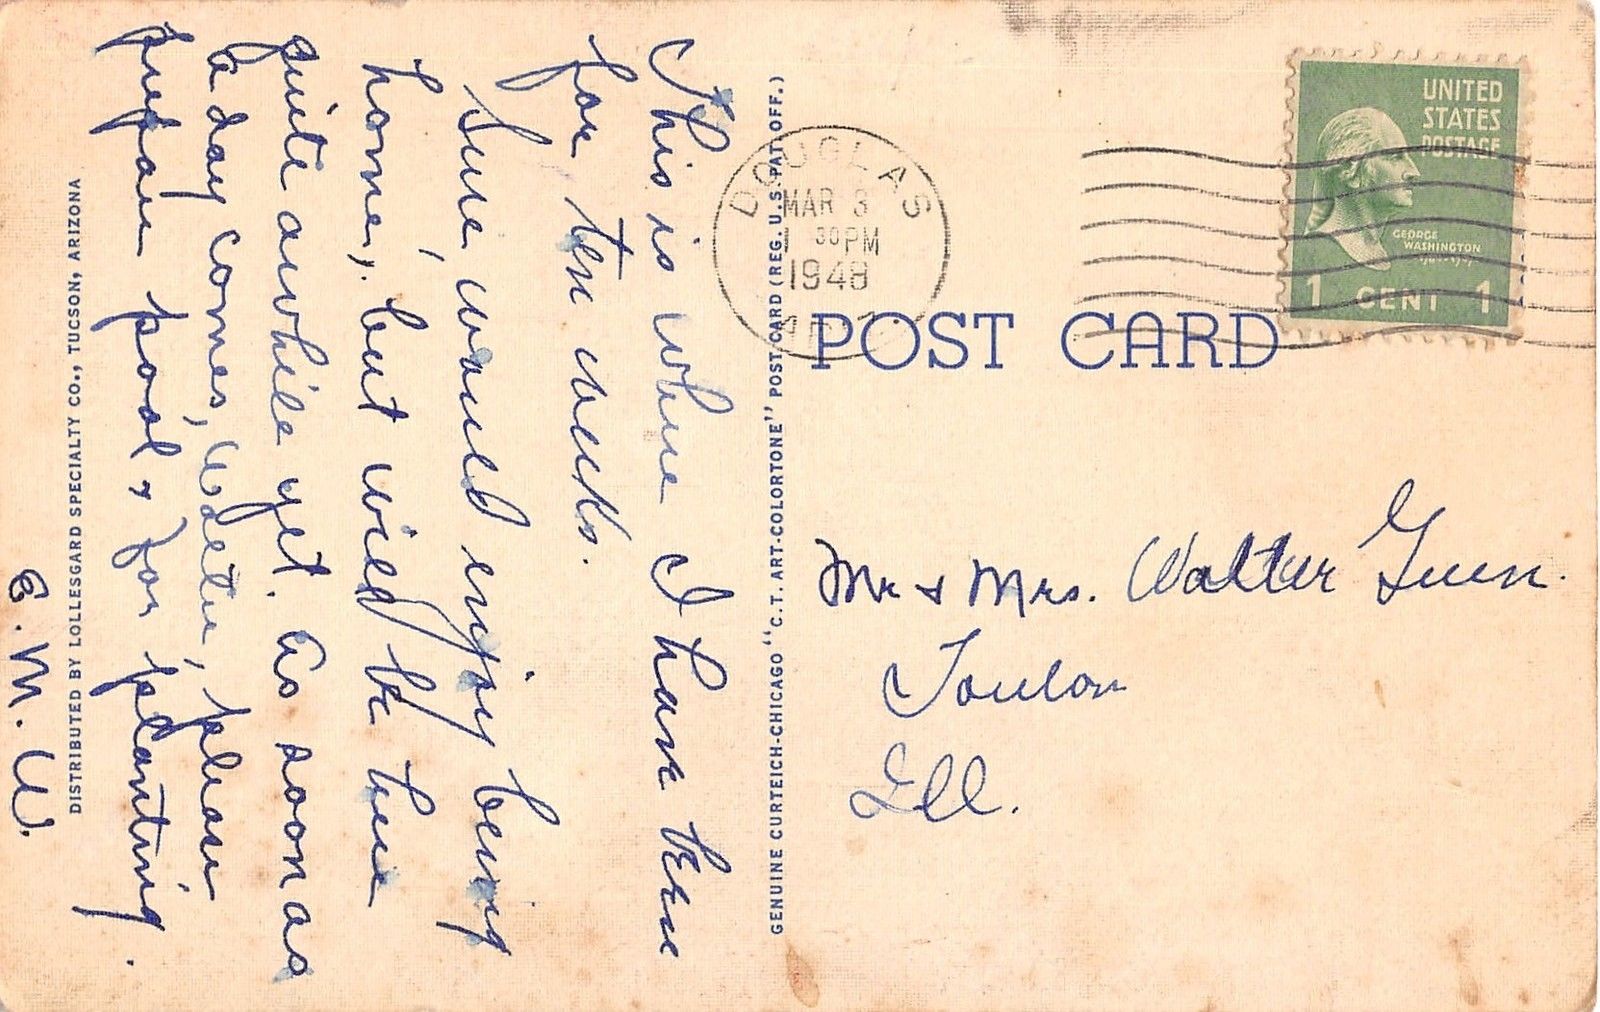 This is where I have been
for ten weeks.
Sure would enjoy being
home, but will be here
quite awhile yet. As soon as
a day comes, Walter, please
prepare pool & for planting.
E. M. W.
DISTRIBUTED BY LOLLESGARD SPECIALTY CO., TUCSON, ARIZONA
GENUINE CURTEICH-CHICAGO "C.T. ART-COLORTONE" POST CARD (REG. U.S. PAT. OFF.)
DOUGLAS
MAR 3
1 30 PM
1948
ARIZ.
UNITED
STATES
POSTAGE
GEORGE
WASHINGTON
1 CENT 1
POST CARD
Mr & Mrs. Walter Green.
Toulon
Ill.